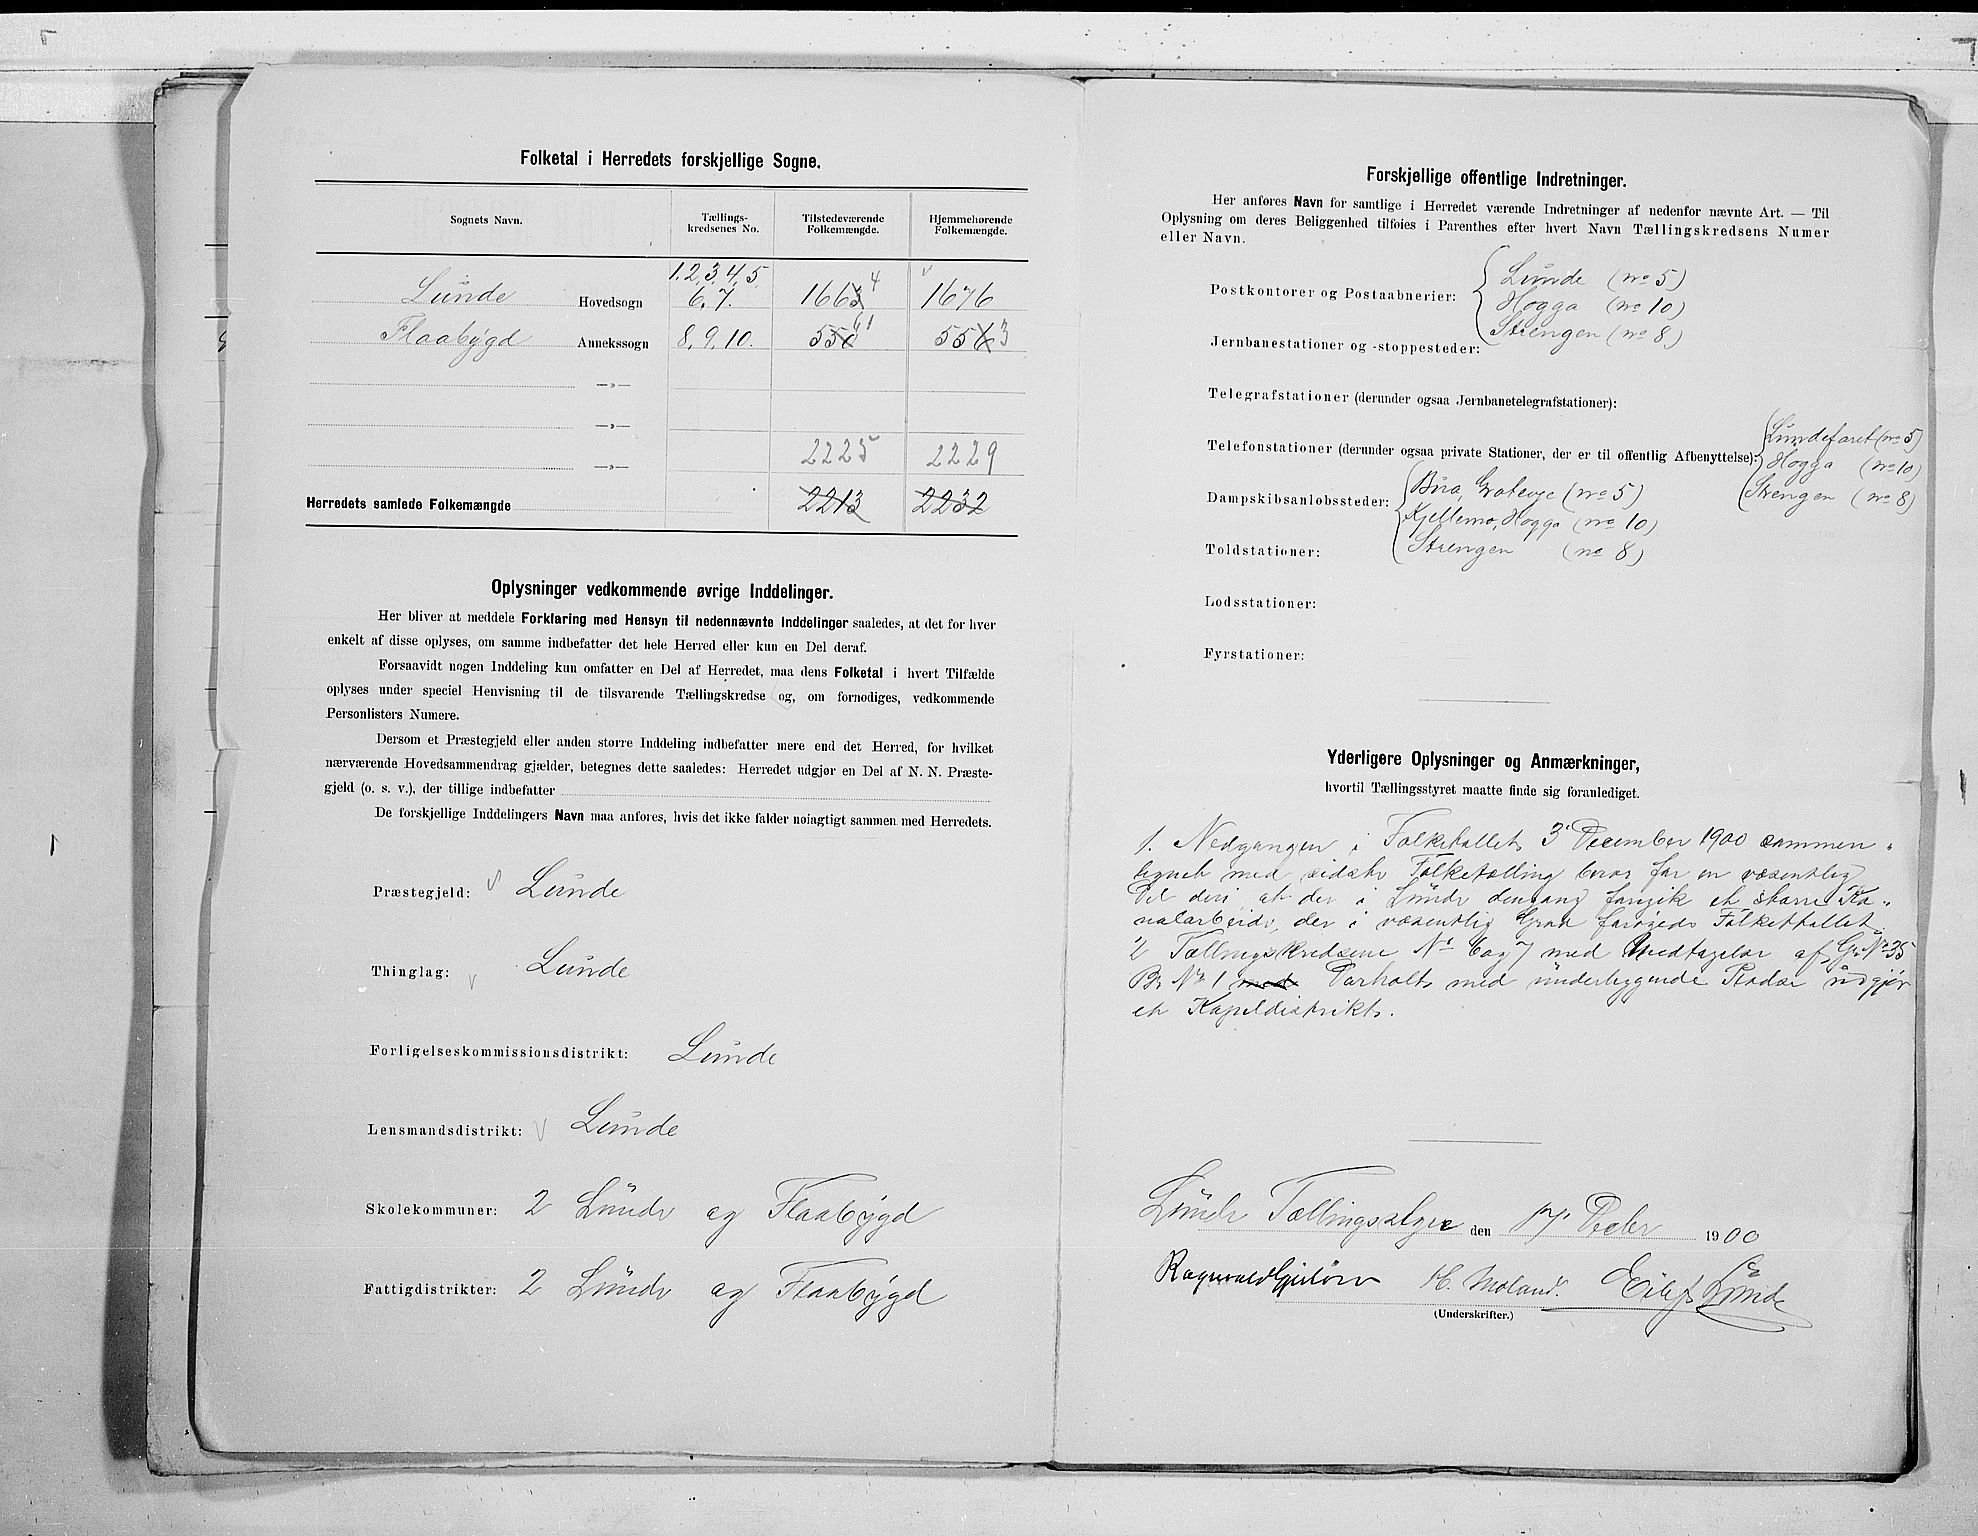 Folketal i Herredets forskjellige Sogne.
Sognets Navn.
Tællings-
kredsenes No.
Tilstedeværende
Folkemængde.
Hjemmehørende
Folkemængde.
1,2,3,4,5,
Lunde Hovedsogn 6,7. 1663 4 1676
Flaabygd Annekssogn 8,9,10. 550 61 556 3
—»—
—»—
2225 2229
—»—
Herredets samlede Folkemængde 2213 2232
Oplysninger vedkommende øvrige Inddelinger.
Her bliver at meddele Forklaring med Hensyn til nedennævnte Inddelinger saaledes, at det for hver
enkelt af disse oplyses, om samme indbefatter det hele Herred eller kun en Del deraf.
Forsaavidt nogen Inddeling kun omfatter en Del af Herredet, maa dens Folketal i hvert Tilfælde
oplyses under speciel Henvisning til de tilsvarende Tællingskredse og, om fornødiges, vedkommende
Personlisters Numere.
Dersom et Præstegjeld eller anden større Inddeling indbefatter mere end det Herred, for hvilket
nærværende Hovedsammendrag gjælder, betegnes dette saaledes: Herredet udgjør en Del af N. N. Præste-
gjeld (o. s. v.), der tillige indbefatter
De forskjellige Inddelingers Navn maa anføres, hvis det ikke falder nøiagtigt sammen med Herredets.
Præstegjeld: Lunde
Thinglag: Lunde
Forligelseskommissionsdistrikt: Lunde
Lensmandsdistrikt: Lunde
Skolekommuner: 2 Lunde og Flaabygd
Fattigdistrikter: 2 Lunde og Flaabygd
Forskjellige offentlige Indretninger.
Her anføres Navn for samtlige i Herredet værende Indretninger af nedenfor nævnte Art. — Til
Oplysning om deres Beliggenhed tilføies i Parenthes efter hvert Navn Tællingskredsens Numer
eller Navn.
Lunde (no 5)
Postkontorer og Postaabnerier: Hogga (no 10)
Strengen (no 8)
Jernbanestationer og -stoppesteder:
Telegrafstationer (derunder ogsaa Jernbanetelegrafstationer):
Lundefaret (no 5)
Telefonstationer (derunder ogsaa private Stationer, der er til offentlig Afbenyttelse): Hogga (no 10)
Strengen (no 8)
Dampskibsanløbssteder: (no 5)
Kjeldemo, Hogga (no 10)
Strengen (no 8)
Toldstationer:
Lodsstationer:
Fyrstationer:
Yderligere Oplysninger og Anmærkninger,
hvortil Tællingsstyret maatte finde sig foranlediget.
1. Nedgangen i Folketallet 3 December 1900 sammen-
lignet med sidste Folketælling beror for en væsentlig
Del deri, at der i Lunde dengang foregik et større Ka-
nalarbeide, der i væsentlig Grad forøgede Folketallet.
2 Tællingskredsene No 6 og 7 med Medtagelse af G. No 35
Br. No 1 med med underliggende Pladse udgjør
et Kapeldistrikt.
Lunde Tællingsstyre den 17 Decbr 1900
H. Moland. Eilef Lunde
(Underskrifter.)